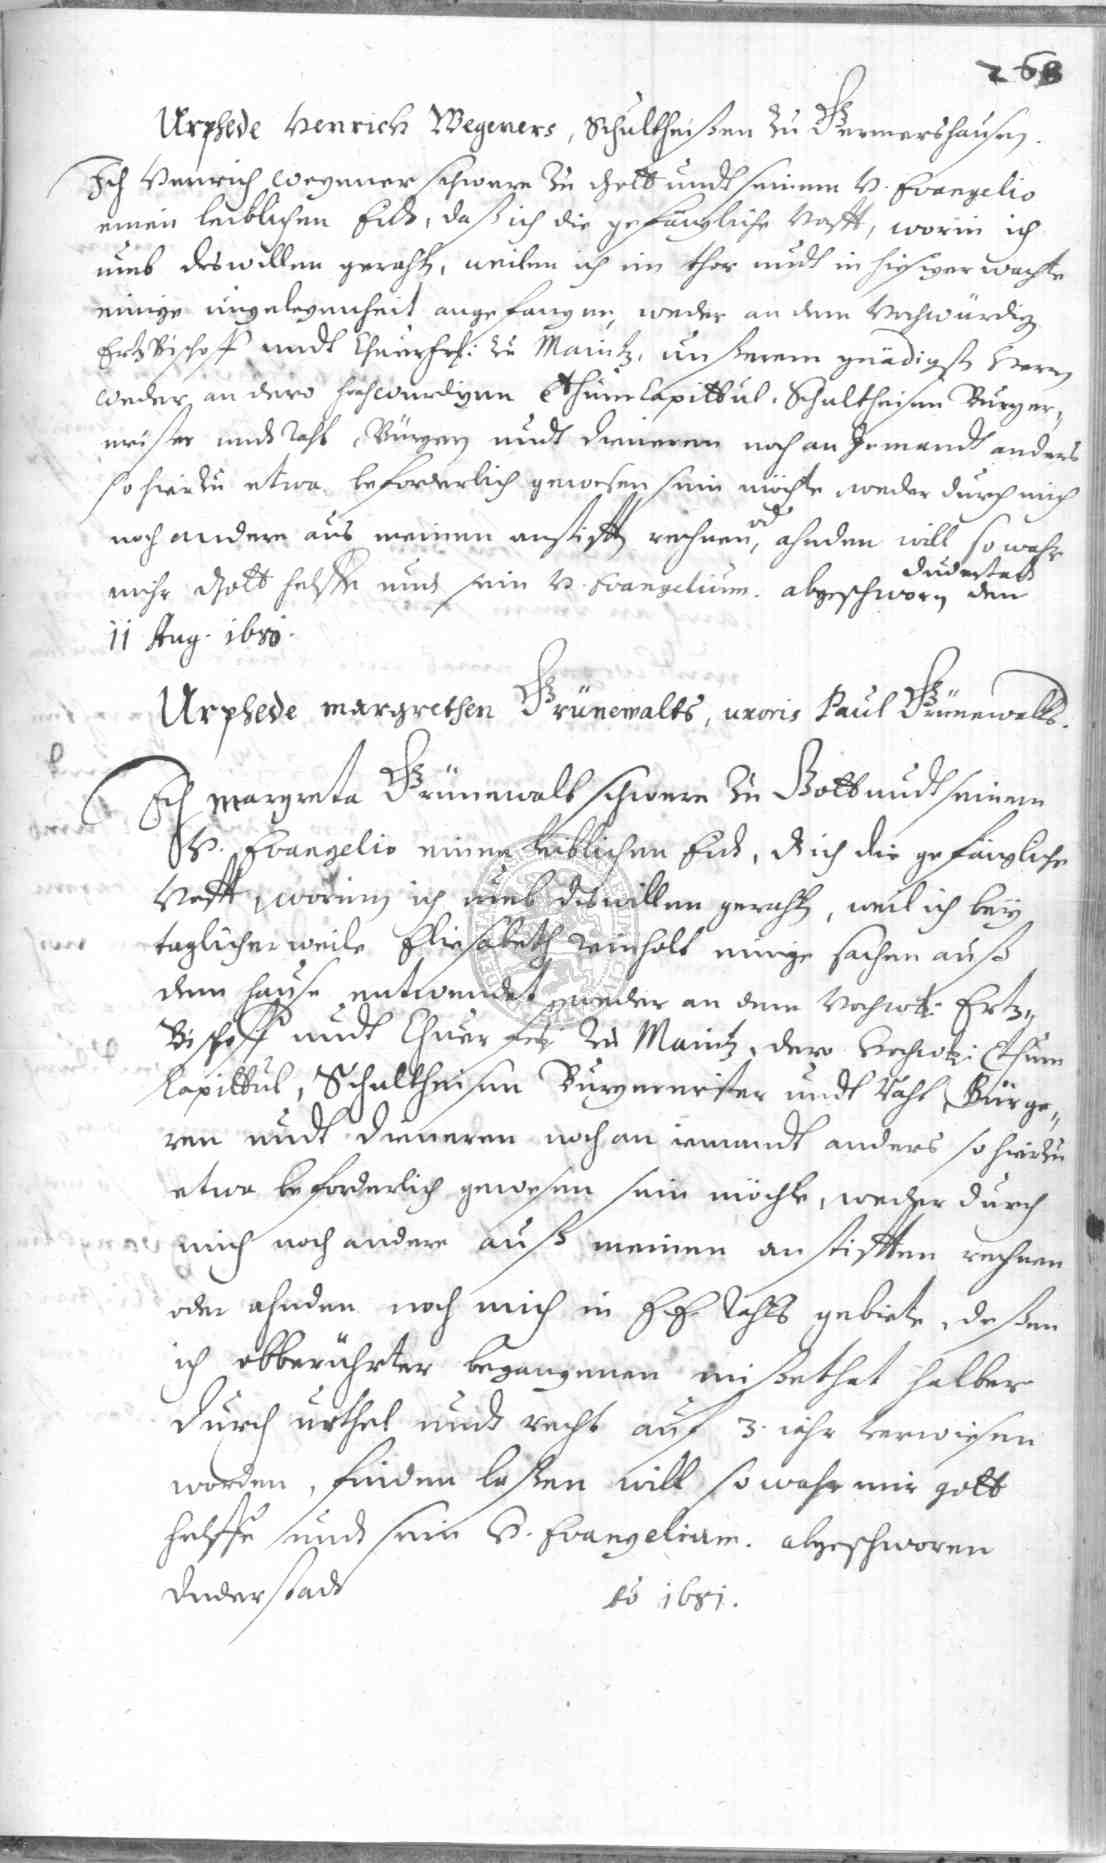 268
Urphede Henrich Wegeners, Schultheißen zu Germershausen.
Ich Henrich Wegener schwere zu Gott undt seinem H. Evangelio
einen leiblichen Eid, daß ich die gefängliche Hafft, worin ich
umb deswillen gerahten, weilen ich im thor undt in hiesiger wachte
einige ungelegenheit angefangen, weder an dem Hochwürdigen
Ertz Bischoff undt Churf: zu Maintz, unßerem gnädigsten Herrn
weder an dero hochwürdigen Thum Capittul, Schultheisen Burger,,
meister undt Raht, Bürgern undt Dieneren noch an Jemandt anders
so hierzu etwa beforderlich gewesen sein möchte, weder durch mich
noch andere aus meinen anstifften rechnen od, ahnden will so wahr
mihr Gott helffe undt sein H. Evangelium. abgeschworen Duderstadt den
11 Aug. 1681.
Urphede Margrethen Grünewalts, uxoris Paul Grünewalts.
Ich Margreta Grünewalt schwere zu Gott undt seinem
H. Evangelio einen leiblichen Eid, dß ich die gefängliche
Hafft, worinn ich umb deswillen gerahten, weil ich bey
taglicher weile Eliesabeth Reinholt einige sachen auß
dem hause entwendet weder an dem Hochw: Ertz,,
Bischoff undt Churf zu Maintz, dero Hochw: Thum
Capittul, Schultheisen Burgemeister undt Raht, Bürge,,
ren undt Dieneren noch an iemandt anders so hierzu
etwa beforderlich gewesen sein möchte, weder durch
mich noch andere auß meinen anstifften rechnen
oder ahnden noch mich in EE Rahts gebiete, deßen
ich obberührter begangenen mißethat halber
durch urthel undt recht auf 3. iahr verwiesen
worden, finden laßen will so wahr mir gott
helffe undt sein H. Evangelium. abgeschworen
Duderstadt 1681.